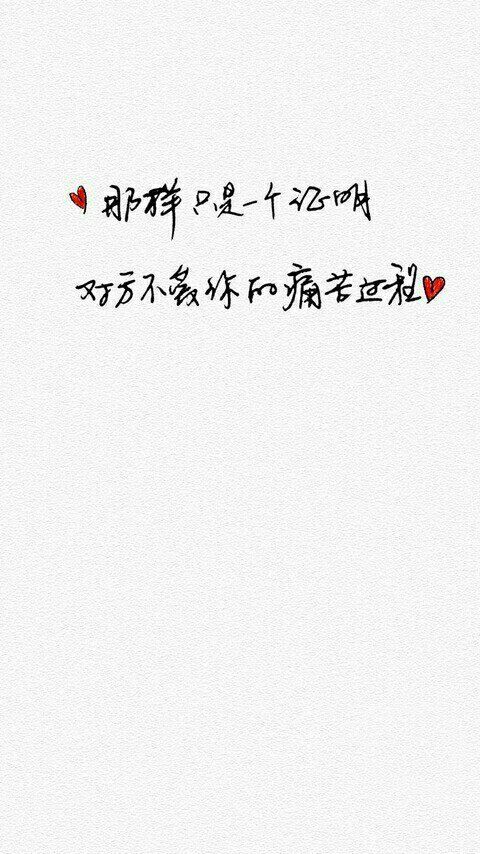 那样只是一个证明
对方不爱你的痛苦过程